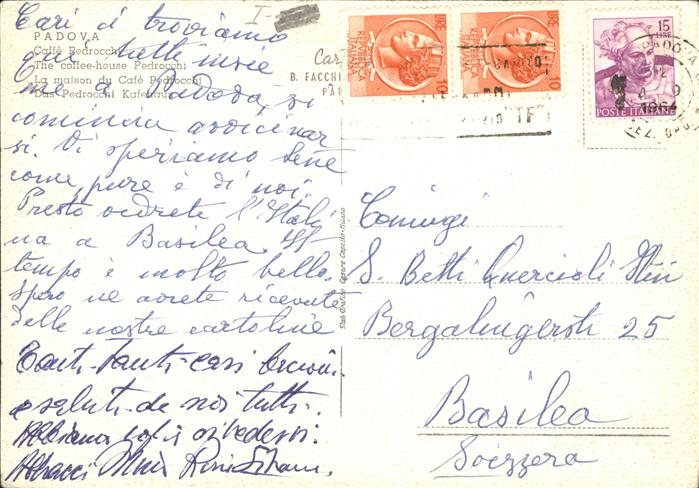 PADOVA
Caffè Pedrocchi
The coffee-house Pedrocchi
La maison du Café Pedrocchi
Das Pedrocchi Kafeehaus
Cari ci troviamo
qui tutti insie
me a Padova, si
comincia avvicinar
si. Vi speriamo bene
come pure è di noi.
Presto vedrete l'Itali
na a Basilea. Il
tempo è molto bello.
Spero ne avrete ricevute
delle nostre cartoline
Tanti tanti cari bacioni
e saluti da noi tutti.
Abbiamo voglia rivedervi.
Abbracci
B. FACCHI
REPUBBLICA ITALIANA
LIRE 10
REPUBBLICA ITALIANA
LIRE 10
15 LIRE
POSTE ITALIANE
PADOVA
1964
Stab. Grafico Cesare Capello-Milano
Coniugi
S. Betti Quercioli Stin
25
Basilea
Svizzera